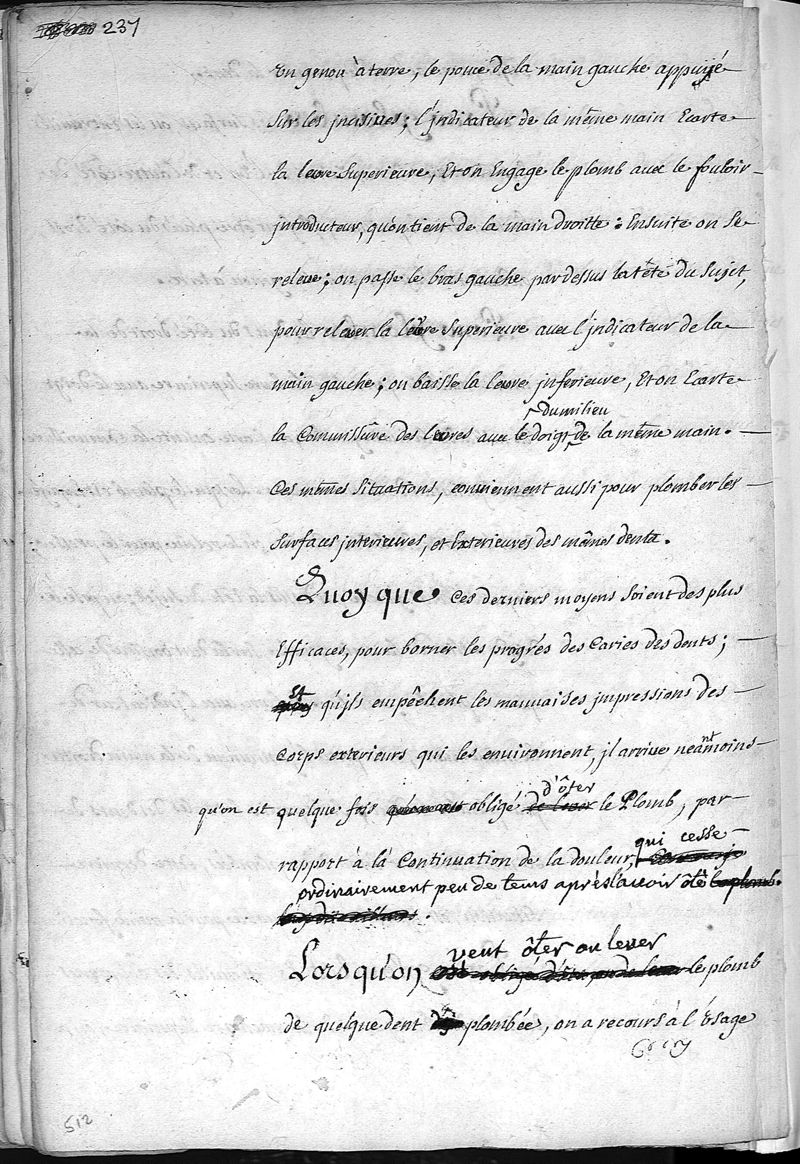 237
un genou à terre, le pouce de la main gauche appuyé
sur les incisives; l'indicateur de la même main Ecarte
la levre Superieure, Et on Engage le plomb avec le fouloir
introducteur, qu'on tient de la main droitte: Ensuite on se
releve; on passe le bras gauche par dessus la tête du Sujet,
pour relever la levre Superieure avec l'indicateur de la
main gauche; on baisse la levre inferieure, Et on Ecarte
du milieu
la Commissûre des levres avec le doigt de la même main.
Ces mêmes Situations, conviennent aussi pour plomber les
Surfaces interieures, et Exterieures des mêmes dents.
Quoyque Ces derniers moyens soient des plus
Efficaces, pour borner les progrés des Caries des dents;
et
qu'ils empêchent les mauvaises impressions des
Corps exterieurs qui les environnent, il arrive neanmoins
d'ôter
qu'on est quelque fois obligé de lever le Plomb, par
qui cesse
rapport à la Continuation de la douleur,
ordinairement peu de tems après l'avoir ôté le plomb.
veut ôter ou lever
Lorsqu'on est obligé d'ôter, ou de lever le plomb
de quelque dent plombée, on a recours à l'Usage
512